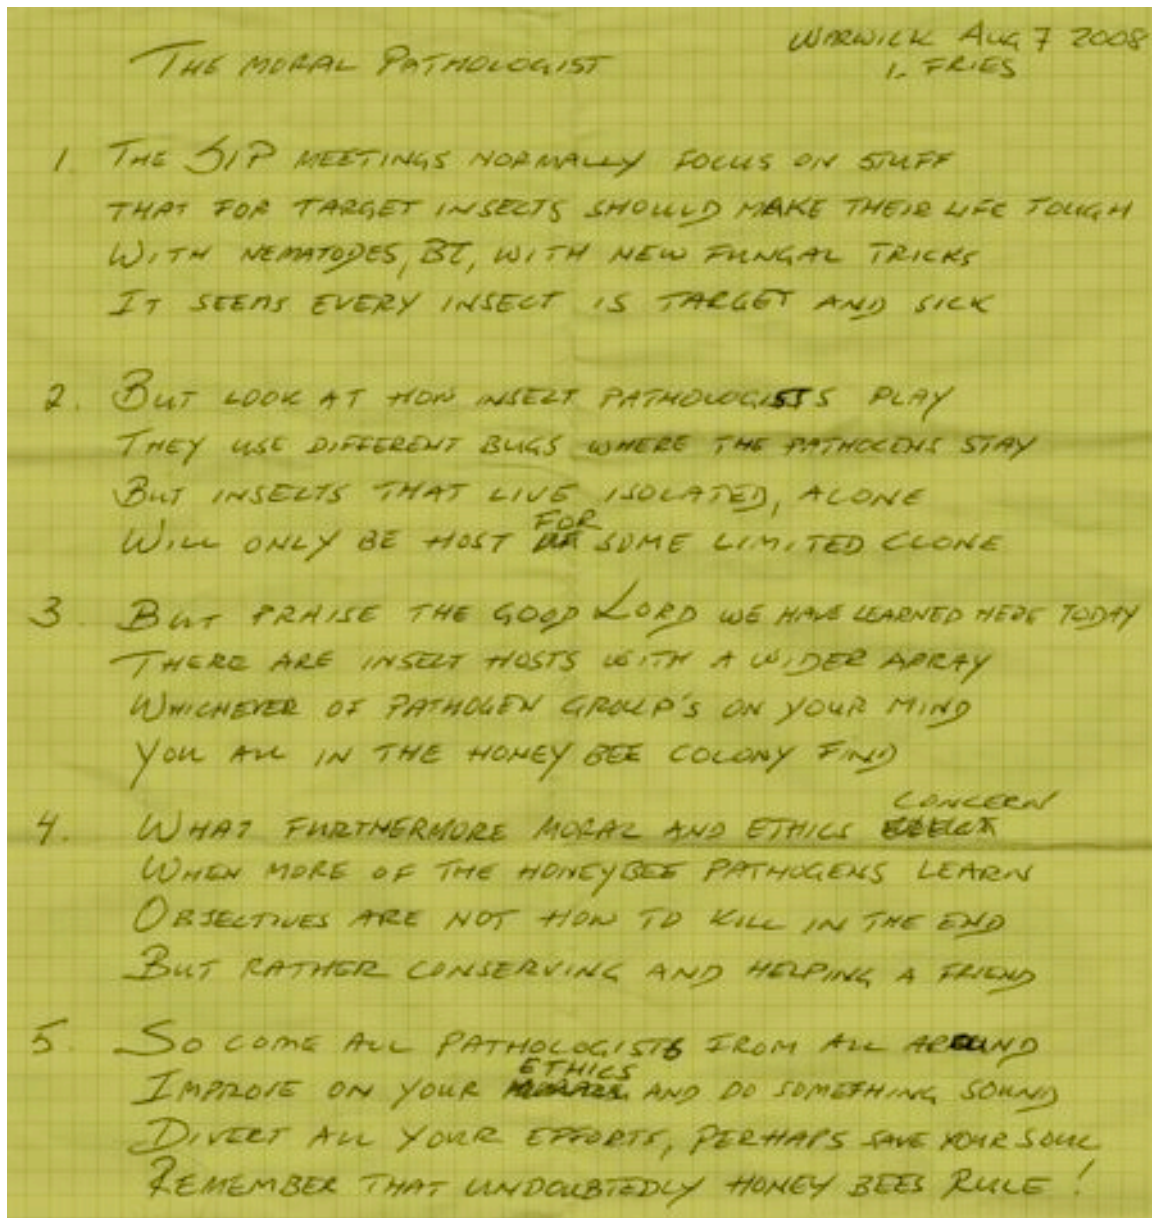 THE MORAL PATHOLOGIST
WARWICK AUG 7 2008
I. FRIES
1. THE SIP MEETINGS NORMALLY FOCUS ON STUFF
THAT FOR TARGET INSECTS SHOULD MAKE THEIR LIFE TOUGH
WITH NEMATODES, BT, WITH NEW FUNGAL TRICKS
IT SEEMS EVERY INSECT IS TARGET AND SICK
2. BUT LOOK AT HOW INSECT PATHOLOGISTS PLAY
THEY USE DIFFERENT BUGS WHERE THE PATHOGENS STAY
BUT INSECTS THAT LIVE ISOLATED, ALONE
WILL ONLY BE HOST FOR SOME LIMITED CLONE
3. BUT PRAISE THE GOOD LORD WE HAVE LEARNED HERE TODAY
THERE ARE INSECT HOSTS WITH A WIDER ARRAY
WHICHEVER OF PATHOGEN GROUP'S ON YOUR MIND
YOU ALL IN THE HONEY BEE COLONY FIND
4. WHAT FURTHERMORE MORAL AND ETHICS CONCERN
WHEN MORE OF THE HONEYBEE PATHOGENS LEARN
OBJECTIVES ARE NOT HOW TO KILL IN THE END
BUT RATHER CONSERVING AND HELPING A FRIEND
5. SO COME ALL PATHOLOGISTS FROM ALL AROUND
IMPROVE ON YOUR ETHICS AND DO SOMETHING SOUND
DIVERT ALL YOUR EFFORTS, PERHAPS SAVE YOUR SOUL
REMEMBER THAT UNDOUBTEDLY HONEY BEES RULE!